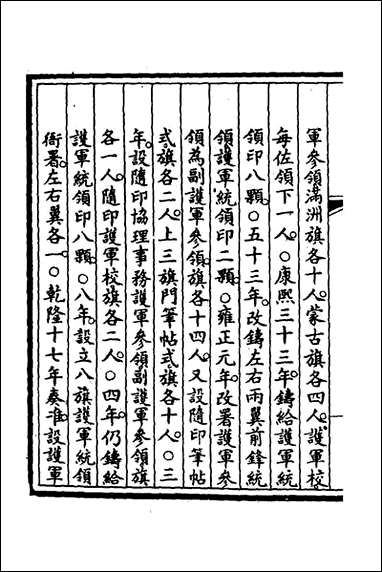 軍參領滿洲旗各十人。蒙古旗各四人。護軍校
每佐領下一人。〇康熙三十三年。鑄給護軍統
領印八顆。〇五十三年。改鑄左右兩翼前鋒統
領護軍統領印二顆。〇雍正元年。改署護軍參
領為副護軍參領。旗各十四人。又設隨印筆帖
式。旗各二人。上三旗門筆帖式。旗各十人。〇三
年。設隨印協理事務護軍參領副護軍參領。旗
各一人。隨印護軍校旗各二人。〇四年。仍鑄給
護軍統領印八顆。〇八年。設立八旗護軍統領
衙署。左右翼各一。〇乾隆十七年奏准。設護軍